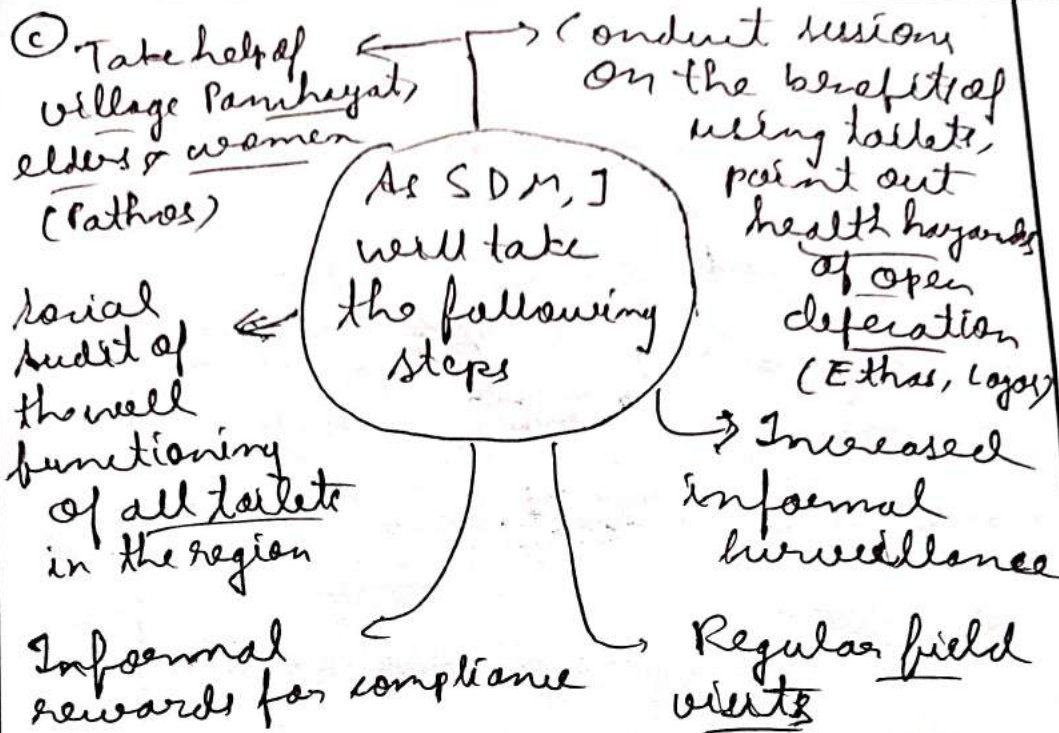 (c) Take help of
village Panchayat,
elders & women
(Pathos)
Conduct sessions
on the benefits of
using toilets,
point out
health hazards
of open
defecation
(Ethos, Logos)
As SDM, I
will take
the following
steps
Social
audit of
the well
functioning
of all toilets
in the region
Increased
informal
surveillance
Informal
rewards for compliance
Regular field
visits